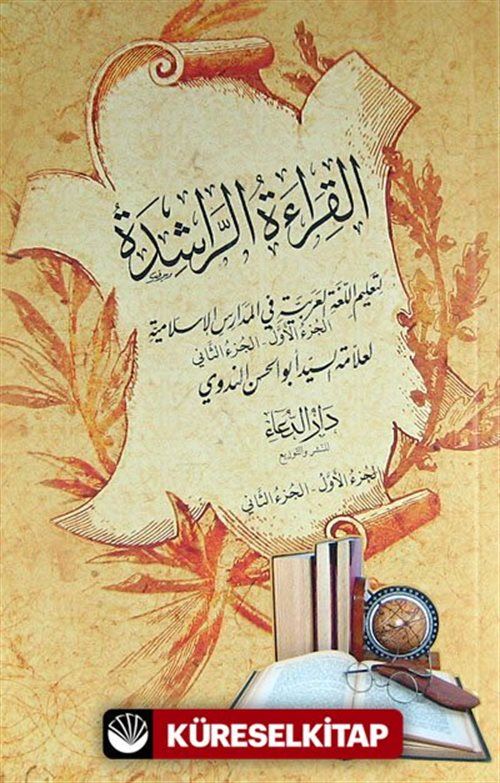 القِرَاءَةُ الرَّاشِدَةُ
لتعليم اللغة العربية في المدارس الإسلامية
الجُزءُ الأوَّلُ - الجُزءُ الثَّاني
لعلامة السيد أبو الحسن الندوي
دَارُ الدُّعَاءِ
للنشر والتوزيع
الجُزءُ الأوَّلُ - الجُزءُ الثَّاني
KÜRESELKİTAP